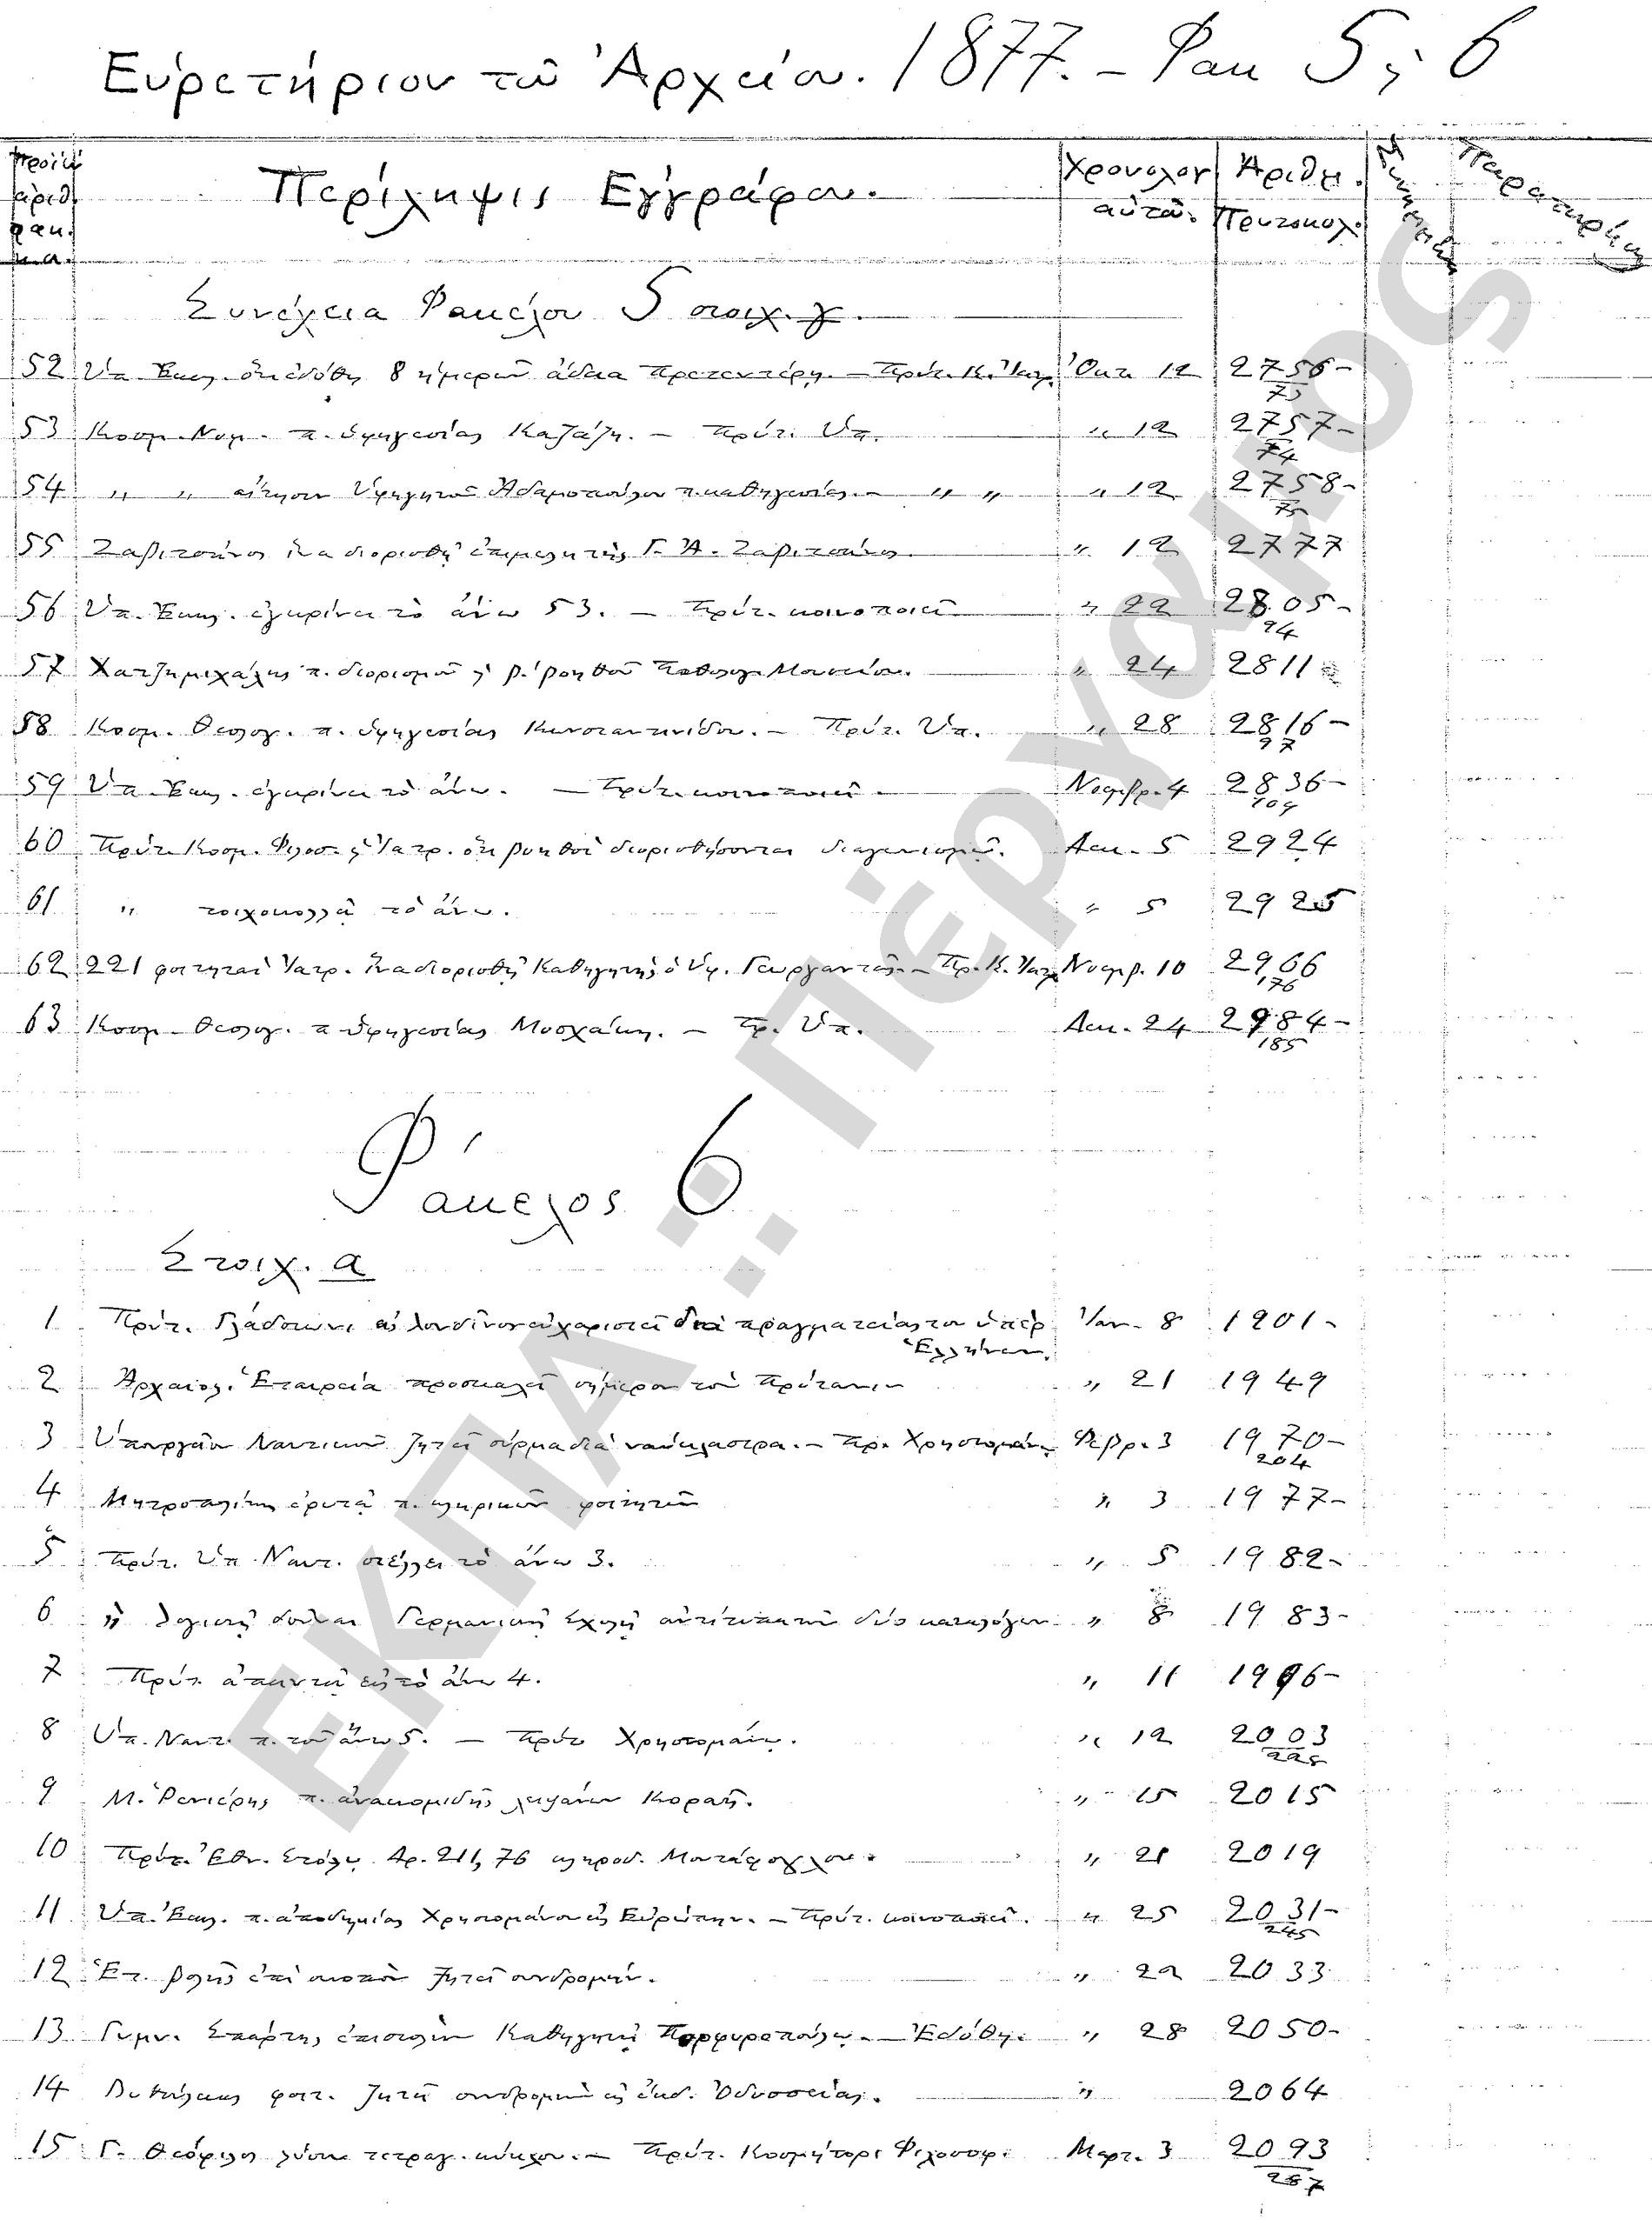 Εὑρετήριον τοῦ Ἀρχείου. 1877. – Φακ 5 ϛ 6
ἀριθ.
φακ.
Περίληψις Ἐγγράφου.
Χρονολογ
αὐτοῦ.
Ἀριθμ.
Πρωτοκολ.
Συνέχεια Φακέλου 5 στοιχ. γ.
52 Ὑπ. Ἐκκλ. ὅτι ἐδόθη 8 ἡμερῶν ἄδεια Πρετεντέρῃ. – Πρύτ. Κ. Ἰατ. Ὀκτ. 12 2756 –
75
53 Κοσμ. Νομ. π. ὑφηγεσίας Καζάζη. – Πρύτ. Ὑπ. „ 12 2757 –
74
54 „ „ αἴτησιν Ὑφηγητοῦ Ἀδαμοπούλου π. καθηγεσίας. – „ „ „ 12 2758 –
75
55 Ζαβιτσάνος ἵνα διορισθῇ ἐπιμελητὴς Γ. Ἀ. Ζαβιτσάνος. „ 12 2777
56 Ὑπ. Ἐκκλ. ἐγκρίνει τὸ ἄνω 53. – Πρύτ. κοινοποιεῖ „ 22 2805 –
94
57 Χατζημιχάλης π. διορισμοῦ ϛ β.' βοηθοῦ Παθολογ. Μουσείου. „ 24 2811
58 Κοσμ. Θεολογ. π. ὑφηγεσίας Κωνσταντινίδου. – Πρύτ. Ὑπ. „ 28 2816 –
97
59 Ὑπ. Ἐκκλ. ἐγκρίνει τὸ ἄνω. – Πρύτ. κοινοποιεῖ. Νοεμβρ. 4 2836 –
104
60 Πρύτ. Κοσμ. Φιλοσ. ϛ Ἰατρ. ὅτι βοηθοὶ διορισθήσονται διαγωνισμῷ. Δεκ. 5 2924
61 „ τοιχοκολλᾷ τὸ ἄνω. „ 5 2925
62 221 φοιτηταὶ Ἰατρ. ἵνα διορισθῇ Καθηγητὴς ὁ Ὑφ. Γεωργαντᾶς. – Πρ. Κ. Ἰατρ Νοεμβ. 10 2966
176
63 Κοσμ. Θεολογ. π. ὑφηγεσίας Μοσχάκη. – Πρ. Ὑπ. Δεκ. 24 2984 –
185
Φάκελος 6
Στοιχ. α
1 Πρύτ. Γλάδστωνι εἰς Λονδῖνον εὐχαριστεῖ διὰ πραγματείας του ὑπὲρ Ἰαν. 8 1901 –
Ἑλλήνων.
2 Ἀρχαιολ. Ἑταιρεία προσκαλεῖ σήμερον τὸν Πρύτανιν „ 21 1949
3 Ὑπουργεῖον Ναυτικῶν ζητεῖ σύρμα διὰ ναύκλαστρα. – Πρ. Χρηστομάνῳ Φεβρ. 3 1970 –
204
4 Μητροπολίτης ἐρωτᾷ π. κληρικῶν φοιτητῶν „ 3 1977 –
5 Πρύτ. Ὑπ. Ναυτ. στέλλει τὸ ἄνω 3. „ 5 1982 –
6 „ Γερμανικῇ Σχολῇ δύο καταλόγων „ 8 1983 –
7 Πρύτ. ἀπαντᾷ εἰς τὸ ἄνω 4. „ 11 1996 –
8 Ὑπ. Ναυτ. π. τοῦ ἄνω 5. – Πρύτ. Χρηστομάνῳ. „ 12 2003
225
9 Μ. Ῥενιέρης π. ἀνακομιδῆς λειψάνων Κοραῆ. „ 15 2015
10 Πρύτ. Ἐθν. Στόλῳ Ἀρ. 211, 76 κληροδ. „ 21 2019
11 Ὑπ. Ἐκκλ. π. ἀποδημίας Χρηστομάνου εἰς Εὐρώπην. – Πρύτ. κοινοποιεῖ. „ 25 2031 –
245
12 Ἑτ. βολῆς ἐπὶ σκοπὸν ζητεῖ συνδρομήν. „ 22 2033
13 Γυμν. Σπάρτης ἐπιστολὴν Καθηγητῇ Πορφυροπούλῳ. – Ἐδόθη. „ 28 2050 –
14 φοιτ. ζητεῖ συνδρομὴν εἰς ἔκδ. Ὀδυσσείας. „ 2064
15 Γ. Θεόφιλος λύσιν τετραγ. κύκλου. – Πρύτ. Κοσμήτορι Φιλοσοφ. Μαρτ. 3 2093
287
ΕΚΠΑ :: Πέργαμος